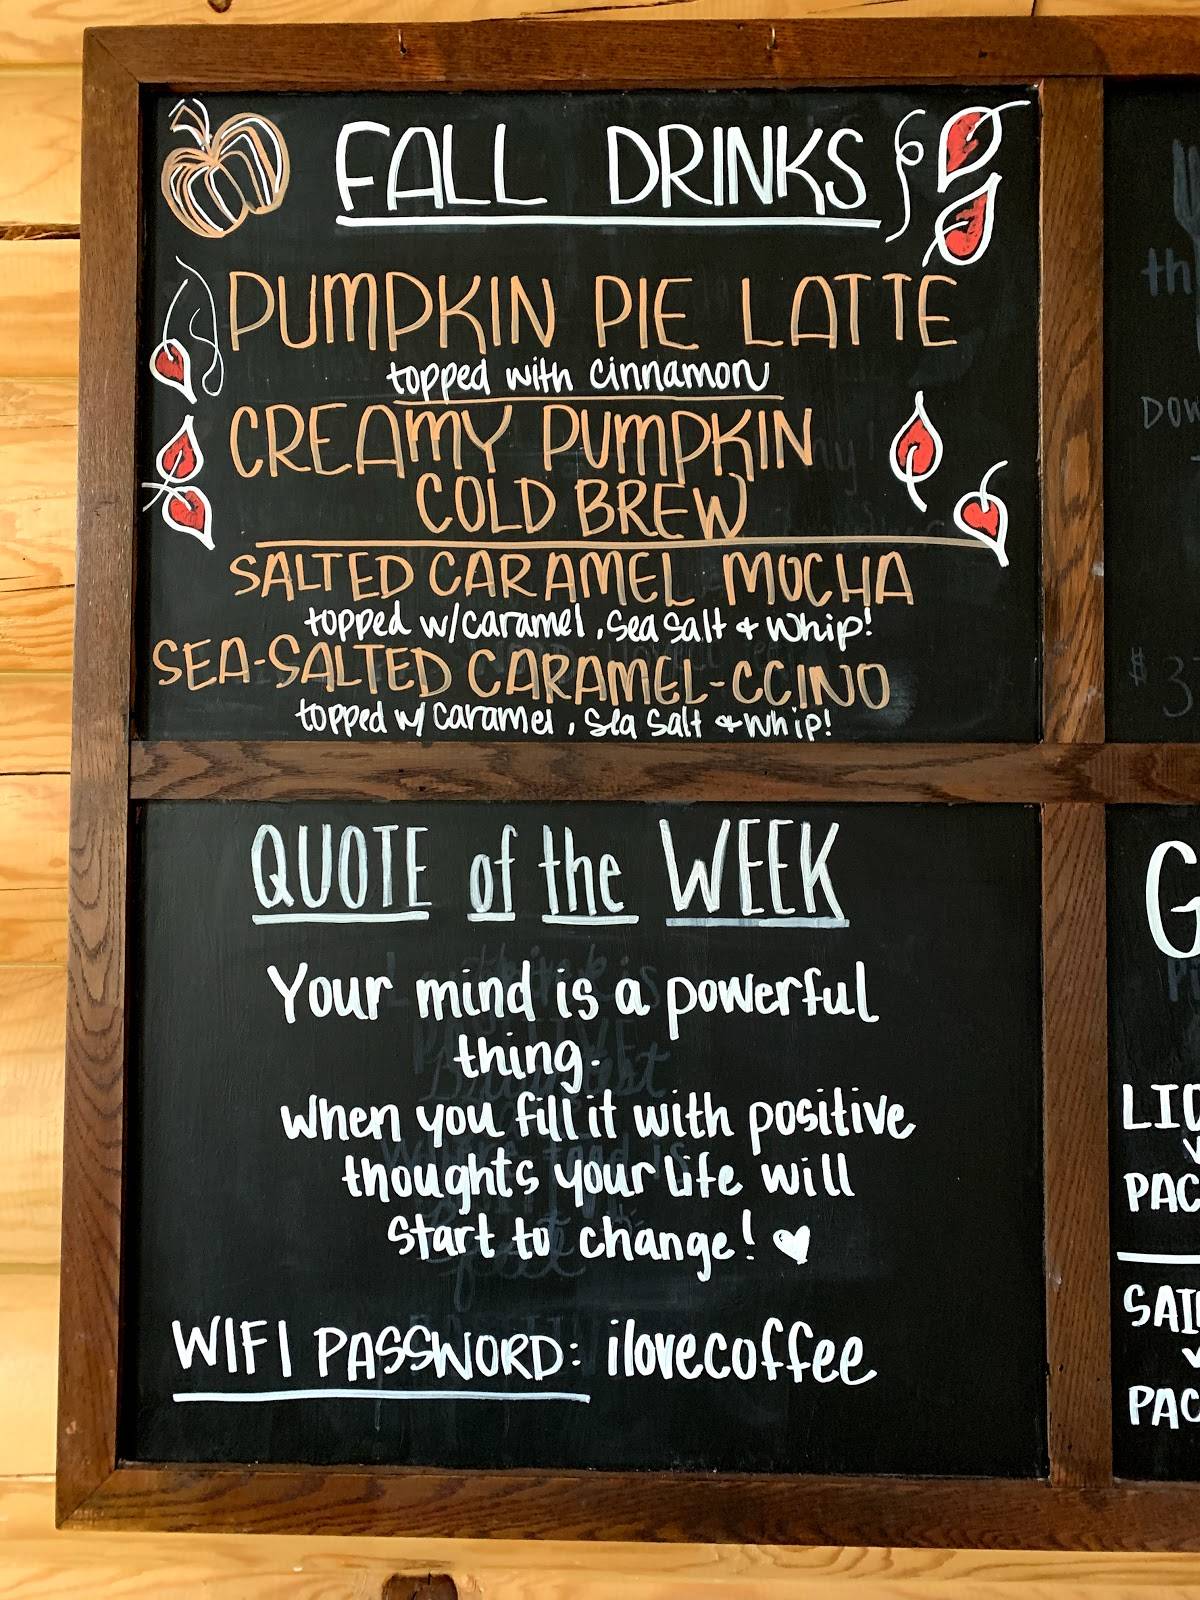 FALL DRINKS
PUMPKIN PIE LATTE
topped with cinnamon
CREAMY PUMPKIN
COLD BREW
SALTED CARAMEL MOCHA
topped w/caramel, Sea Salt & Whip!
SEA-SALTED CARAMEL-CCINO
topped w/ caramel, Sea Salt & Whip!
QUOTE of the WEEK
Your mind is a powerful
thing.
When you fill it with positive
thoughts your life will
Start to change!
WIFI PASSWORD: ilovecoffee
G
LIQ
PAC
SAI
PAC